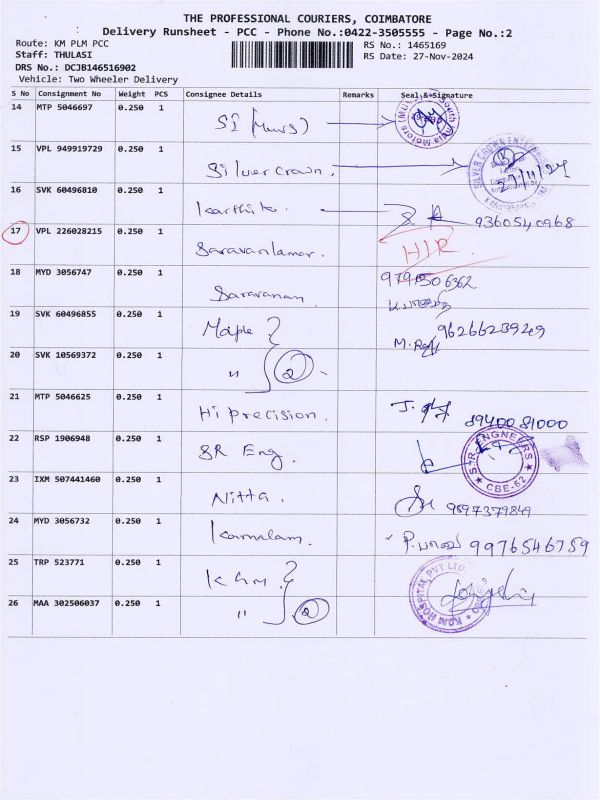 THE PROFESSIONAL COURIERS, COIMBATORE
Delivery Runsheet - PCC - Phone No.:0422-3505555 - Page No.:2
Route: KM PLM PCC
Staff: THULASI
DRS No.: DCJB146516902
Vehicle: Two Wheeler Delivery
RS No.: 1465169
RS Date: 27-Nov-2024
S No Consignment No Weight PCS Consignee Details Remarks Seal & Signature
14 MTP 5046697 0.250 1 SI
15 VPL 949919729 0.250 1 Silver crown. 27/11/24
16 SVK 60496810 0.250 1 Karthik. 9360540968
17 VPL 226028215 0.250 1 HIR
18 MYD 3056747 0.250 1 Saravanan 9791506362
19 SVK 60496855 0.250 1 Maple M. 9626623949
20 SVK 10569372 0.250 1 " 2
21 MTP 5046625 0.250 1 Hi precision. J. 8940081000
22 RSP 1906948 0.250 1 SR Eng. CBE-62
23 IXM 507441460 0.250 1 Nitta. 9597379849
24 MYD 3056732 0.250 1 Kamalam. 9976546759
25 TRP 523771 0.250 1 KGM HOSPITAL PVT LTD
26 MAA 302506037 0.250 1 " 2